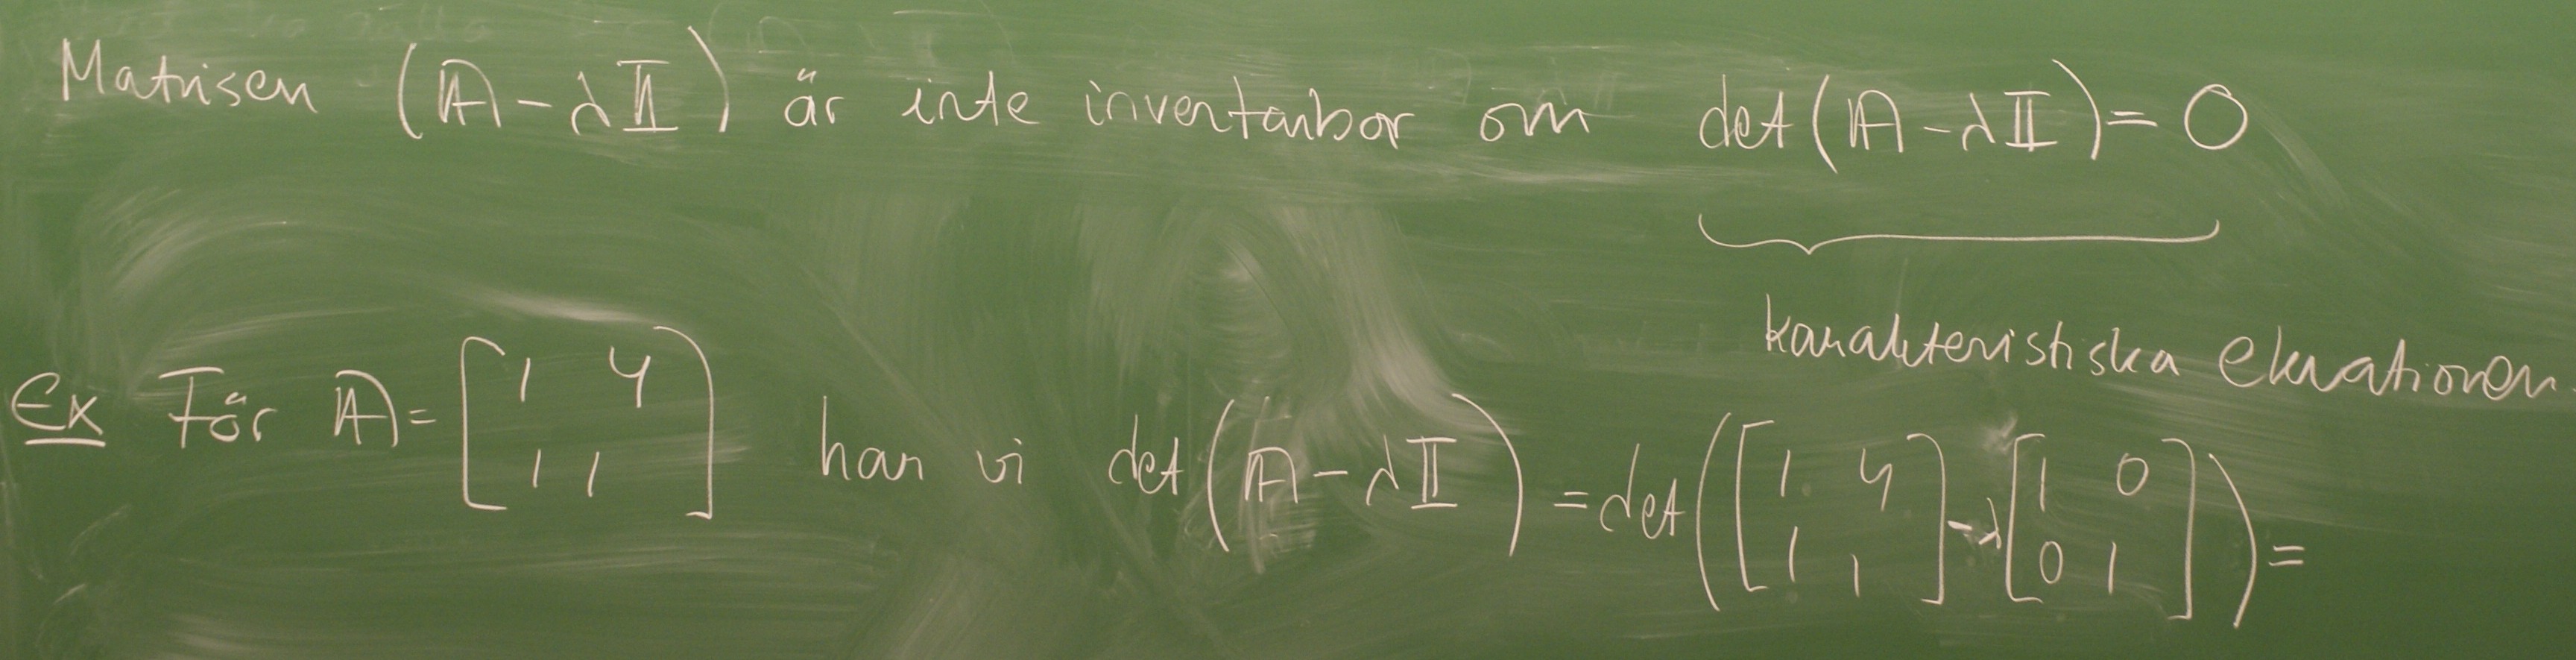 Matrisen (A - λI) är inte inventarbar om det(A - λI) = 0
karakteristiska ekvationen
Ex För A = [1 4; 1 1] har vi det(A - λI) = det([1 4; 1 1] - λ[1 0; 0 1]) =